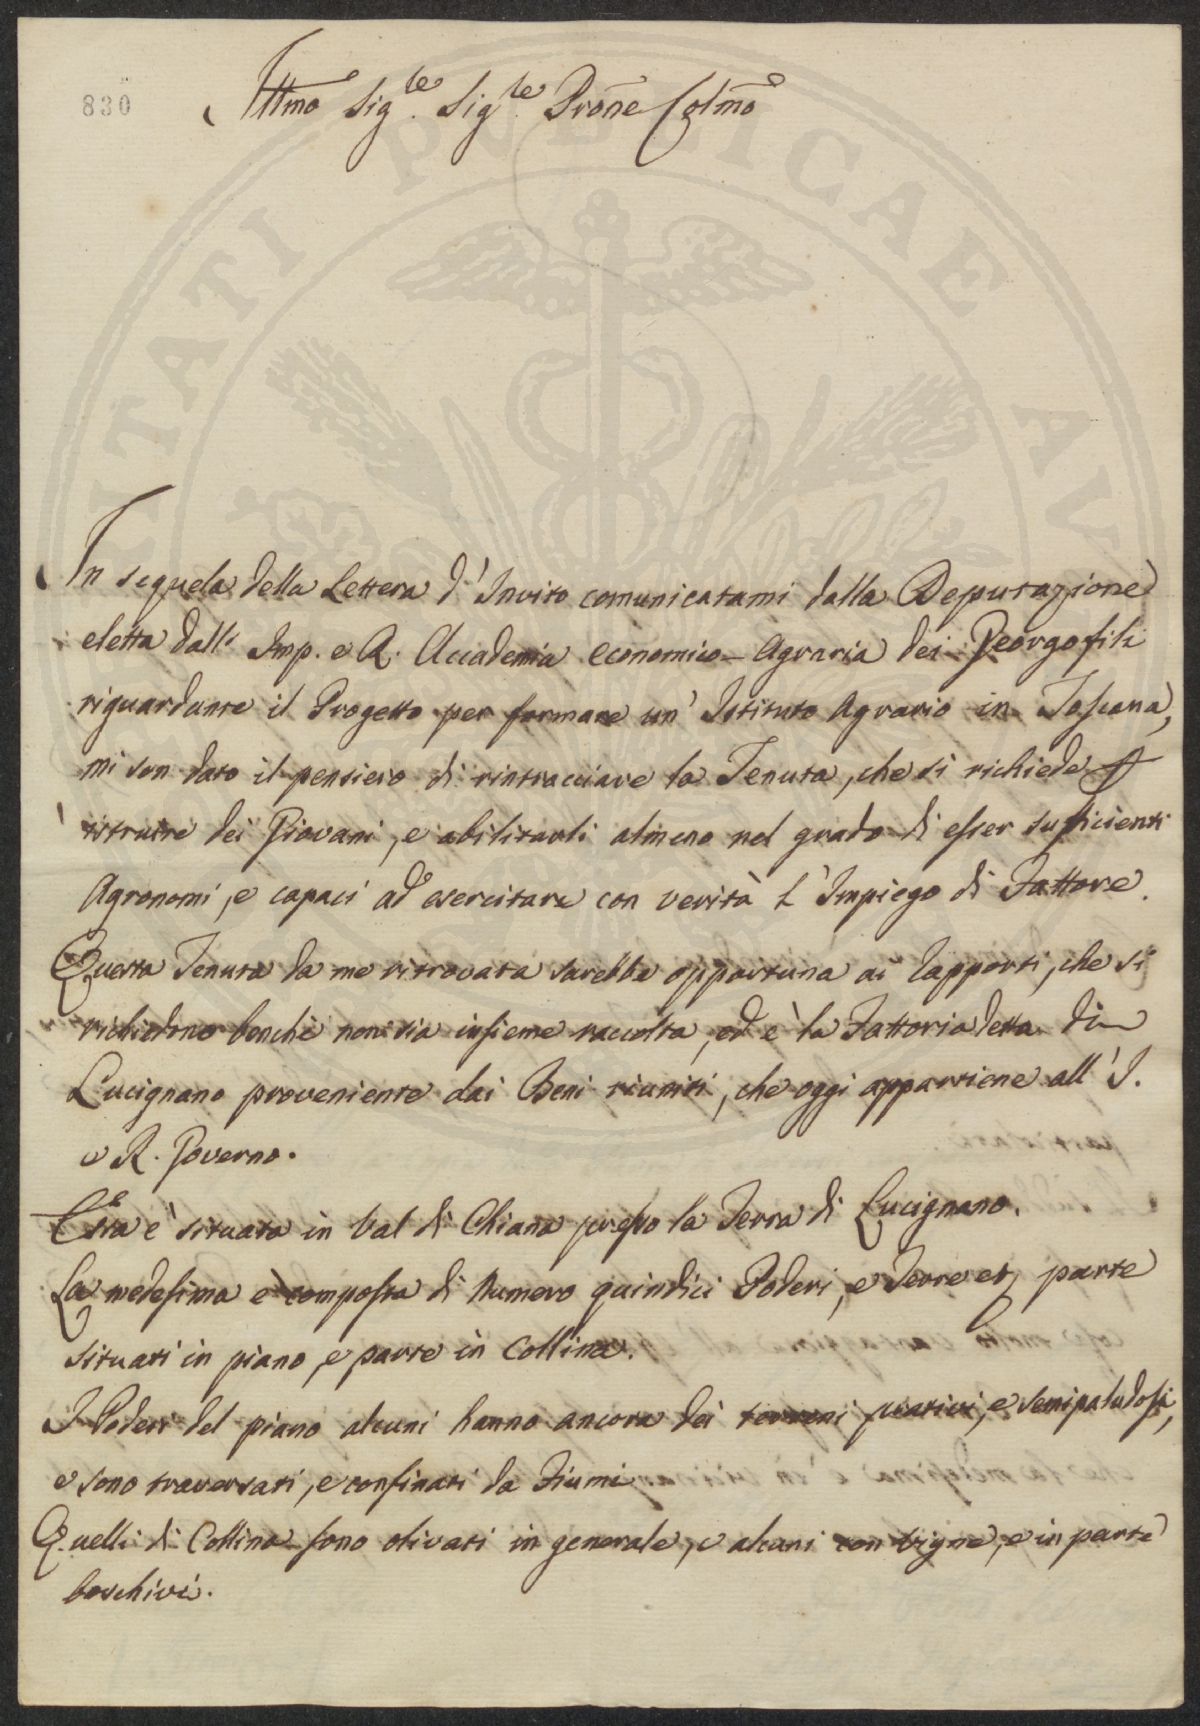 830
Illmo Sig.re Sig.re Prone Colmo
In sequela della Lettera d'Invito comunicatami dalla Deputazione
eletta dall' Imp. e R. Accademia economico-Agraria dei Georgofili
riguardante il Progetto per formare un' Istituto Agrario in Toscana,
mi son dato il pensiero di rintracciare la Tenuta, che si richiede p
istruire dei Giovani, e abilitarli almeno nel grado di esser sufficienti
Agronomi, e capaci ad esercitare con verità l'Impiego di Fattore.
Questa Tenuta da me ritrovata sarebbe opportuna ai rapporti, che si
richiedono benchè non sia insieme raccolta, ed è la Fattoria detta di
Lucignano proveniente dai Beni riuniti, che oggi appartiene all' I.
e R. Governo.
Essa è situata in Val di Chiana presso la Terra di Lucignano.
La medesima è composta di Numero quindici Poderi, e Terre et, parte
situati in piano, e parte in Collina.
I Poderi del piano alcuni hanno ancora dei terreni prativi, e semipaludosi,
e sono traversati, e confinati da Fiumi
Quelli di Collina sono olivati in generale, e alcuni con vigne, e in parte
boschivi.
PUBLICAE